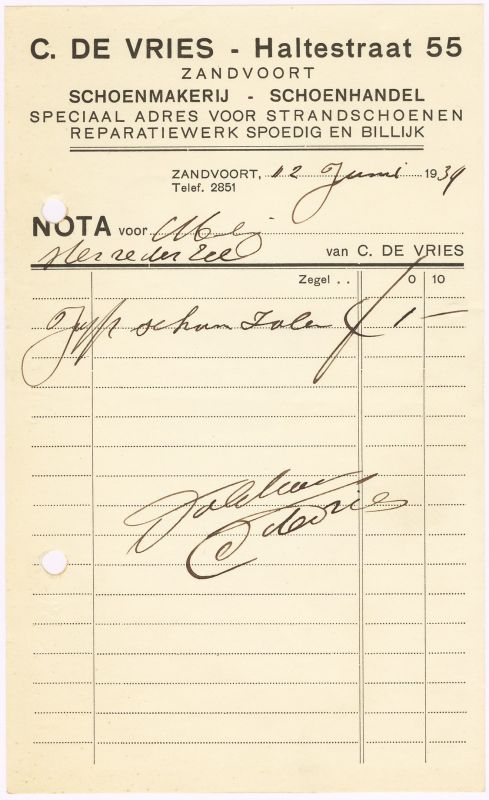 C. DE VRIES - Haltestraat 55
ZANDVOORT
SCHOENMAKERIJ - SCHOENHANDEL
SPECIAAL ADRES VOOR STRANDSCHOENEN
REPARATIEWERK SPOEDIG EN BILLIJK
ZANDVOORT, 12 Juni 1939
Telef. 2851
NOTA voor
van C. DE VRIES
Zegel . . 0 10
1 -
Voldaan
C de Vries